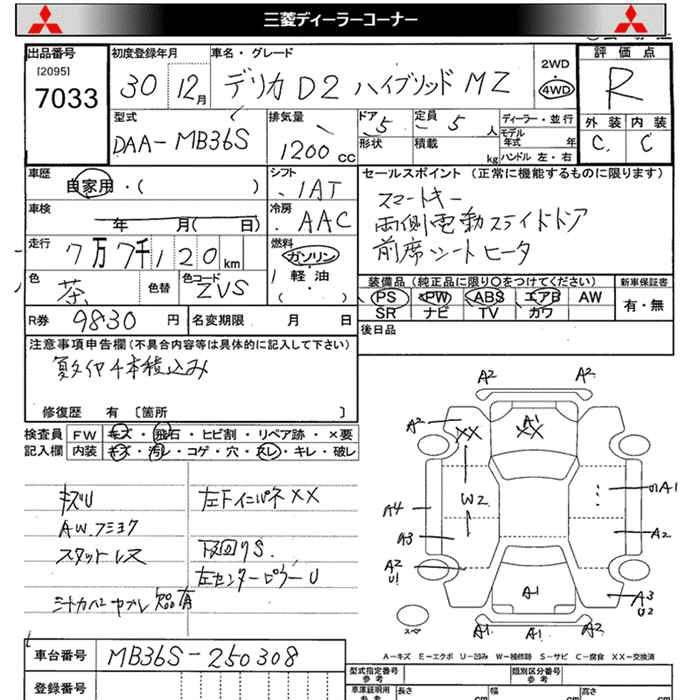 三菱ディーラーコーナー
出品番号 初度登録年月 車名・グレード 2WD 評価点
[2095] 30 12月 デリカD2 ハイブリッド MZ 4WD R
7033
型式 排気量 ドア 定員 ディーラー・並行 外装 内装
DAA-MB36S 1200cc 5 5人 モデル年式 年 C C
形状 積載 kg ハンドル 左・右
車歴 シフト セールスポイント (正常に機能するものに限ります)
自家用・( ) IAT スマートキー
車検 冷房 両側電動スライドドア
年 月( 日) AAC 前席シートヒータ
走行 燃料
7万7千120km ガソリン
色 色替 色コード 軽・油 装備品 (純正品に限り○をつけてください) 新車保証書
茶 ZVS ( ) PS PW ABS エアB AW 有・無
SR ナビ TV カワ
R券 9830円 名変期限 月 日 後日品
注意事項申告欄 (不具合内容等は具体的に記入して下さい)
夏タイヤ4本積込み
修復歴 有 〔箇所 〕
検査員 FW キズ・飛石・ヒビ割・リペア跡・×要
記入欄 内装 キズ・汚レ・コゲ・穴・スレ・キレ・破レ
キズU 左FインパネXX
AW.アミヨク
スタットレス 下回りS.
左センターピラーU
A2 A2
A2 XX A1 XX
W2
A4 A1
A3 A2
A2 U1 A1 A3 U2
スペア A1 A1 A1
A−キズ E−エクボ U−凹み W−補修跡 S−サビ C−腐食 XX−交換済
車台番号 MB36S-250308
登録番号
型式指定番号 参考 類別区分番号 参考
車庫証明用 参考 長さ cm 幅 cm 高さ cm